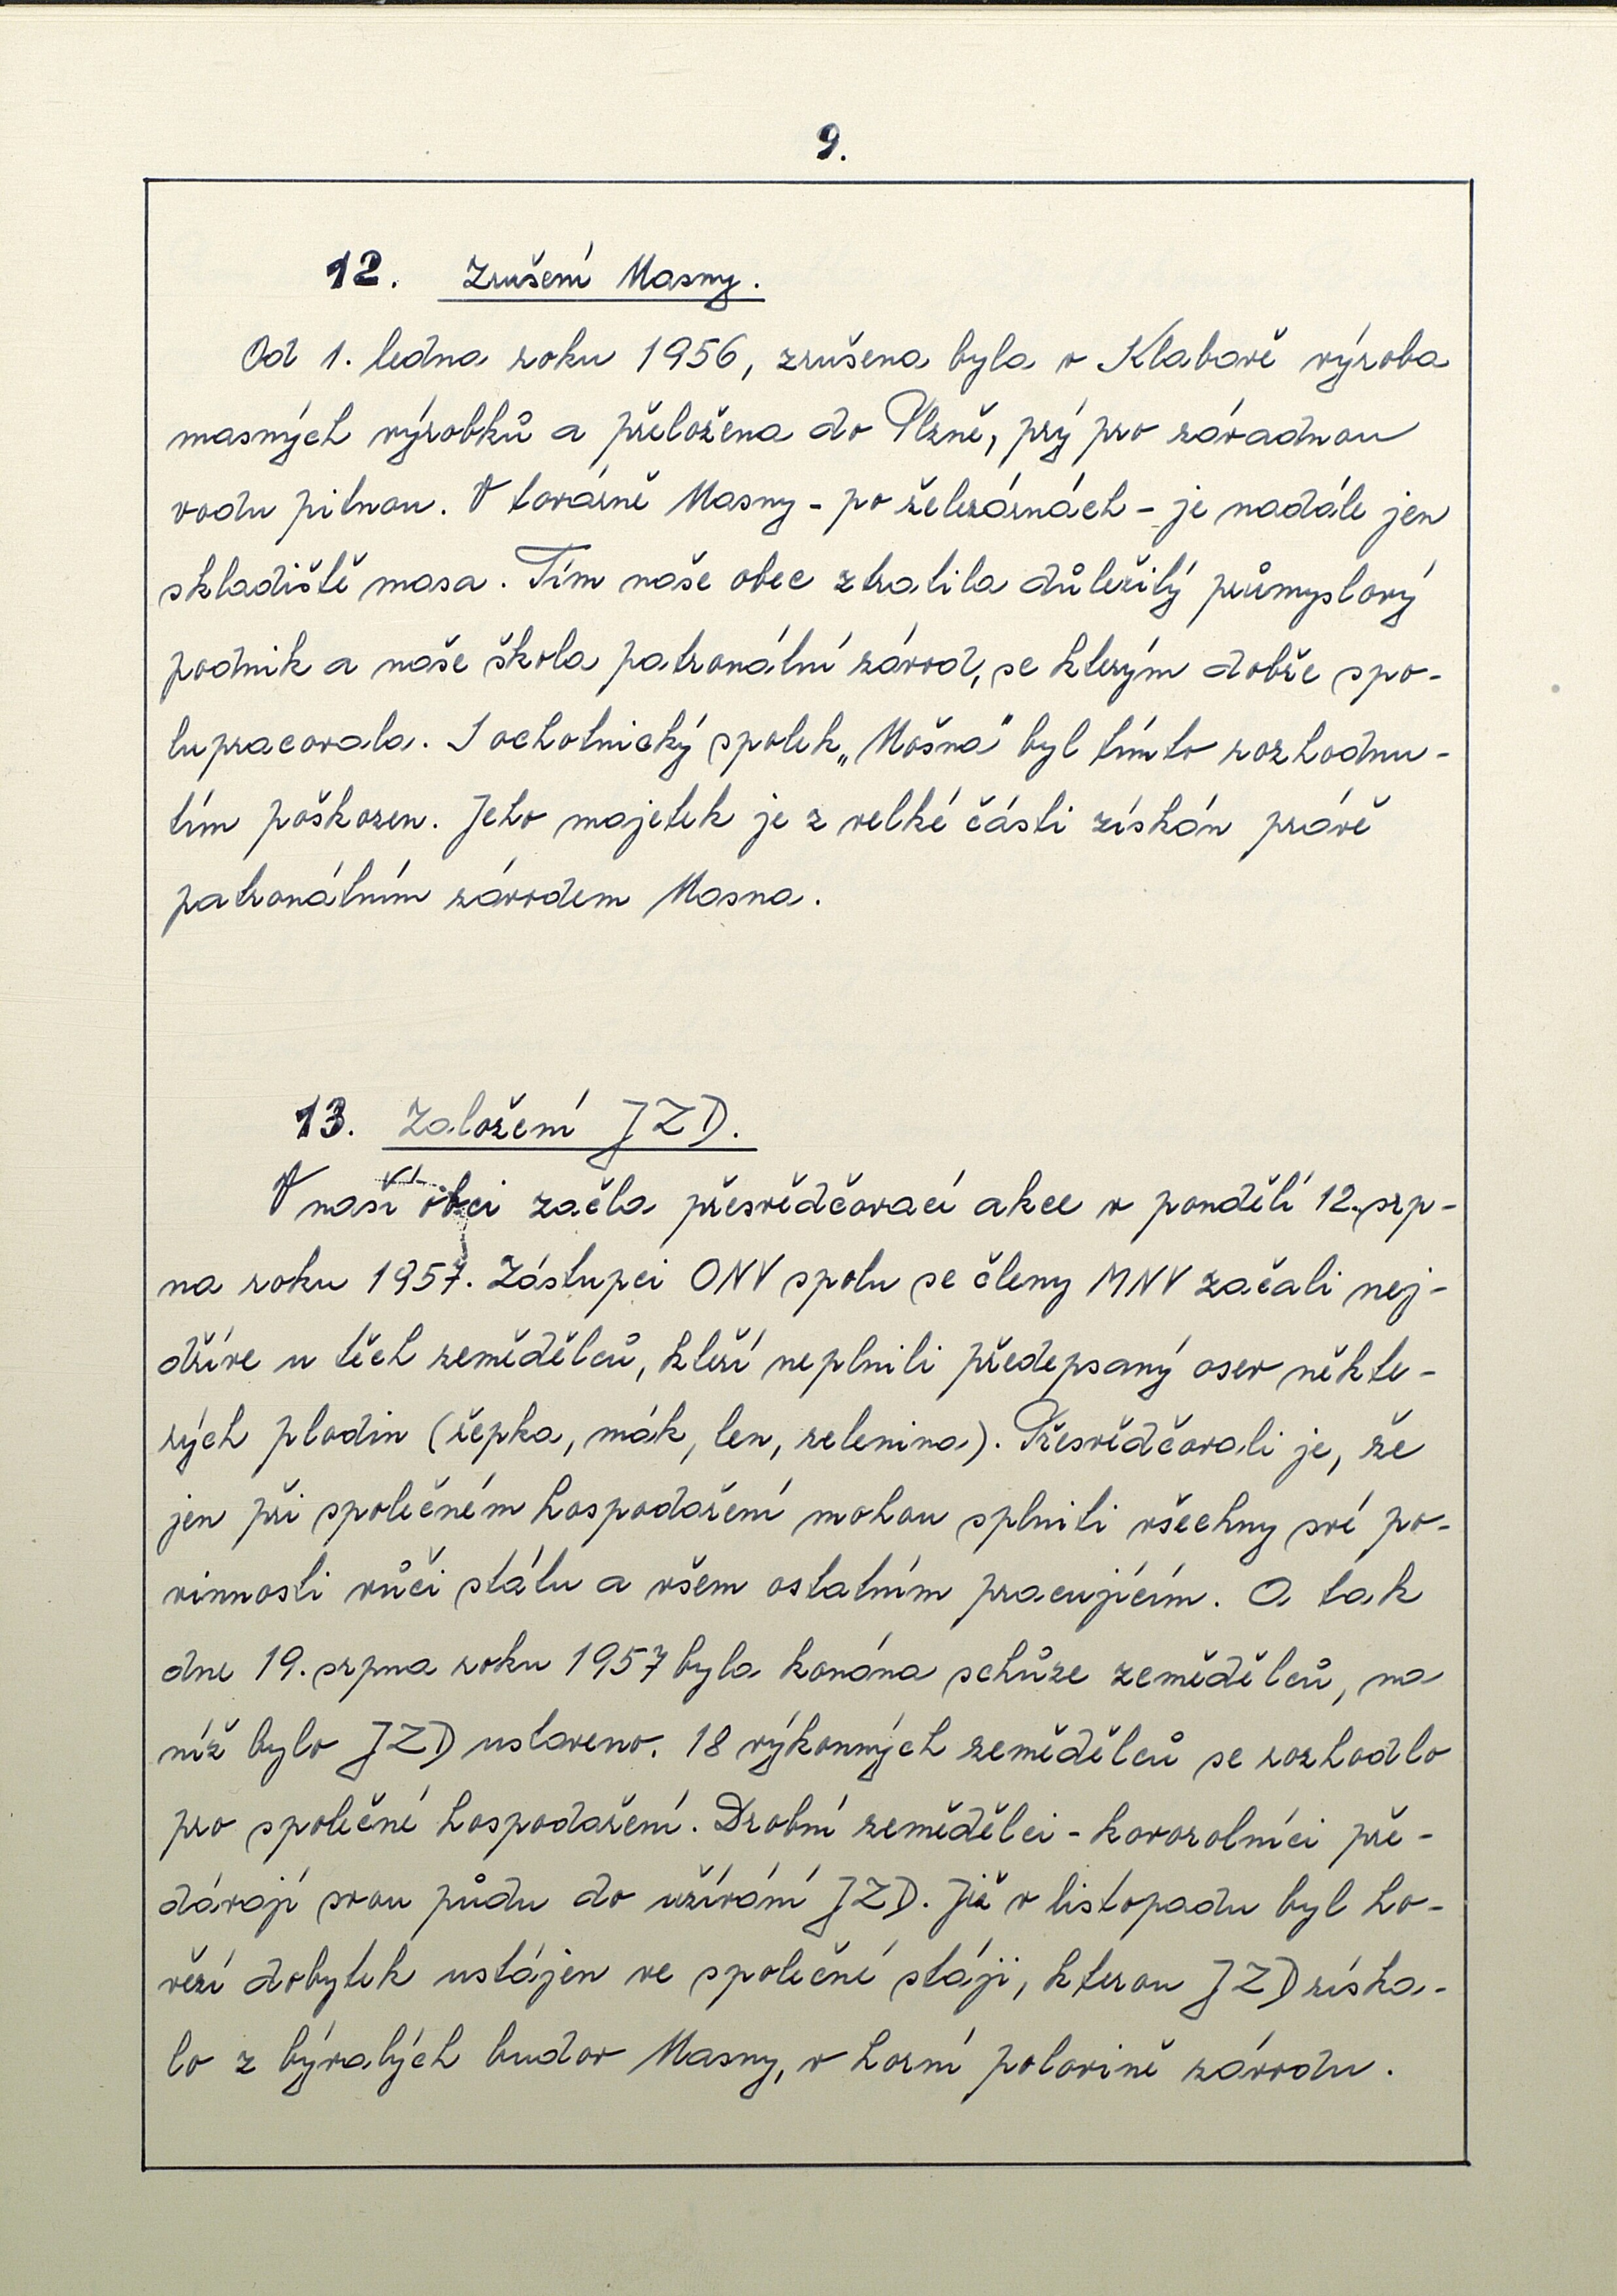 9.
12. Zrušení Masny.
Od 1. ledna roku 1956, zrušena byla v Klabavě výroba
masných výrobků a přeložena do Plzně, prý pro závadnou
vodu pitnou. V továrně Masny - po železárnách - je nadále jen
skladiště masa. Tím naše obec ztratila důležitý průmyslový
podnik a naše škola patronátní závod, se kterým dobře spo-
lupracovala. I ochotnický spolek „Mošna" byl tímto rozhodnu-
tím poškozen. Jeho majetek je z velké části získán právě
patronátním závodem Masna.
13. Založení JZD.
V naší obci začla přesvědčovací akce v pondělí 12. srp-
na roku 1957. Zástupci ONV spolu se členy MNV začali nej-
dříve u těch zemědělců, kteří neplnili předepsaný osev někte-
rých plodin (řepka, mák, len, zelenina). Přesvědčovali je, že
jen při společném hospodaření mohou splniti všechny své po-
vinnosti vůči státu a všem ostatním pracujícím. A tak
dne 19. srpna roku 1957 byla konána schůze zemědělců, na
níž bylo JZD ustaveno. 18 výkonných zemědělců se rozhodlo
pro společné hospodaření. Drobní zemědělci - kovorolníci pře-
dávají svou půdu do užívání JZD. Již v listopadu byl ho-
vězí dobytek ustájen ve společné stáji, kterou JZD získa-
lo z bývalých budov Masny, v horní polovině závodu.